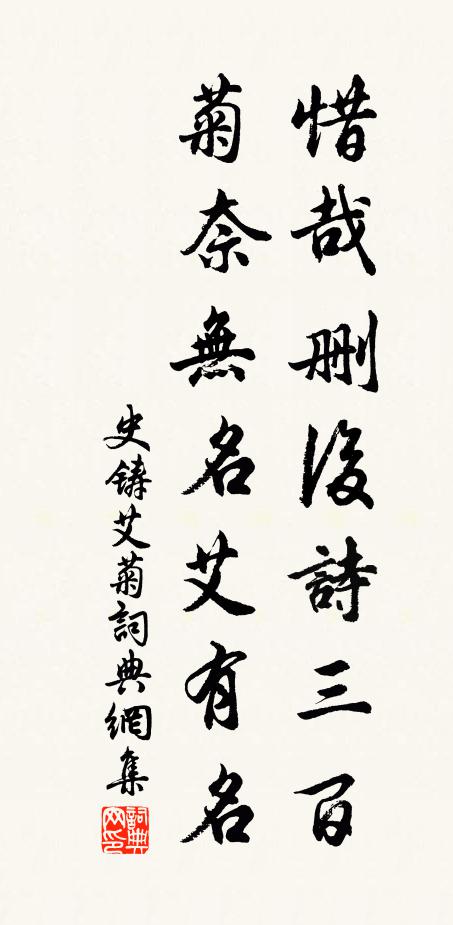 惜哉删後詩三百
菊奈無名艾有名
史鑄艾菊詞典網集
詞典網印